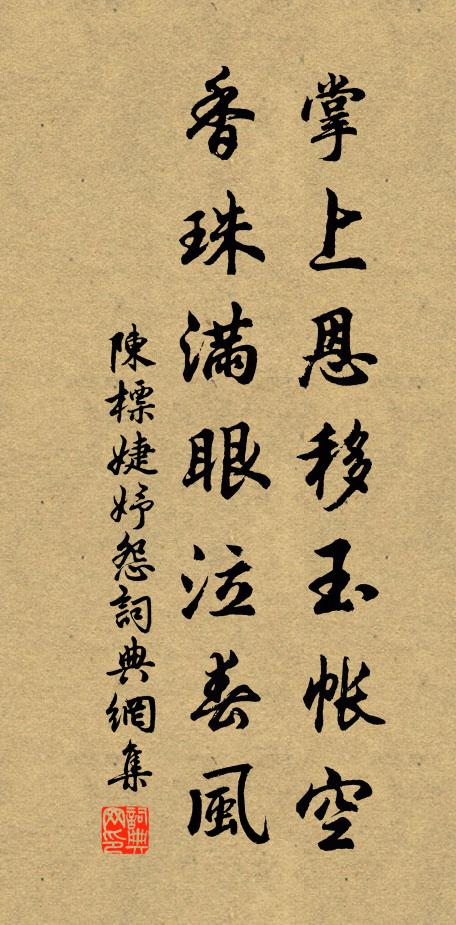 掌上恩移玉帳空
香珠滿眼泣春風
陳標婕妤怨詞典網集
詞典網印